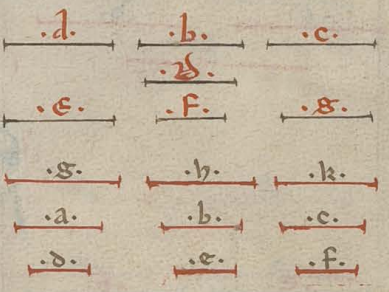 .d. .b. .c.
.d.
.e. .f. .g.
.g. .h. .k.
.a. .b. .c.
.d. .e. .f.